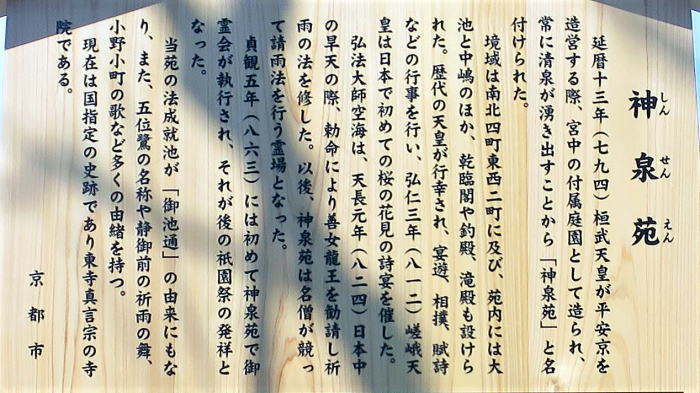 神泉苑
しんせんえん
延暦十三年（七九四）桓武天皇が平安京を
造営する際、宮中の付属庭園として造られ、
常に清泉が湧き出すことから「神泉苑」と名
付けられた。
境域は南北四町東西二町に及び、苑内には大
池と中嶋のほか、乾臨閣や釣殿、滝殿も設けら
れた。歴代の天皇が行幸され、宴遊、相撲、賦詩
などの行事を行い、弘仁三年（八一二）嵯峨天
皇は日本で初めての桜の花見の詩宴を催した。
弘法大師空海は、天長元年（八二四）日本中
の旱天の際、勅命により善女龍王を勧請し祈
雨の法を修した。以後、神泉苑は名僧が競っ
て請雨法を行う霊場となった。
貞観五年（八六三）には初めて神泉苑で御
霊会が執行され、それが後の祇園祭の発祥と
なった。
当苑の法成就池が「御池通」の由来にもな
り、また、五位鷺の名称や静御前の祈雨の舞、
小野小町の歌など多くの由緒を持つ。
現在は国指定の史跡であり東寺真言宗の寺
院である。
京都市